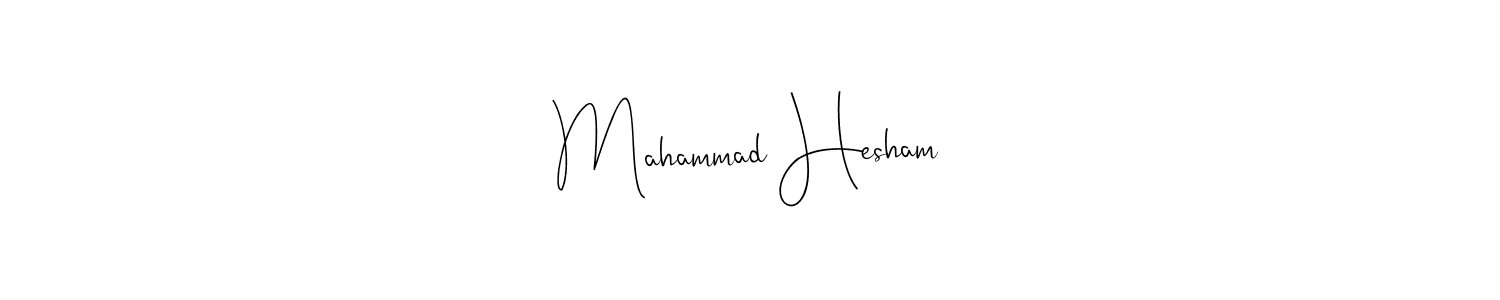 Mahammad Hesham